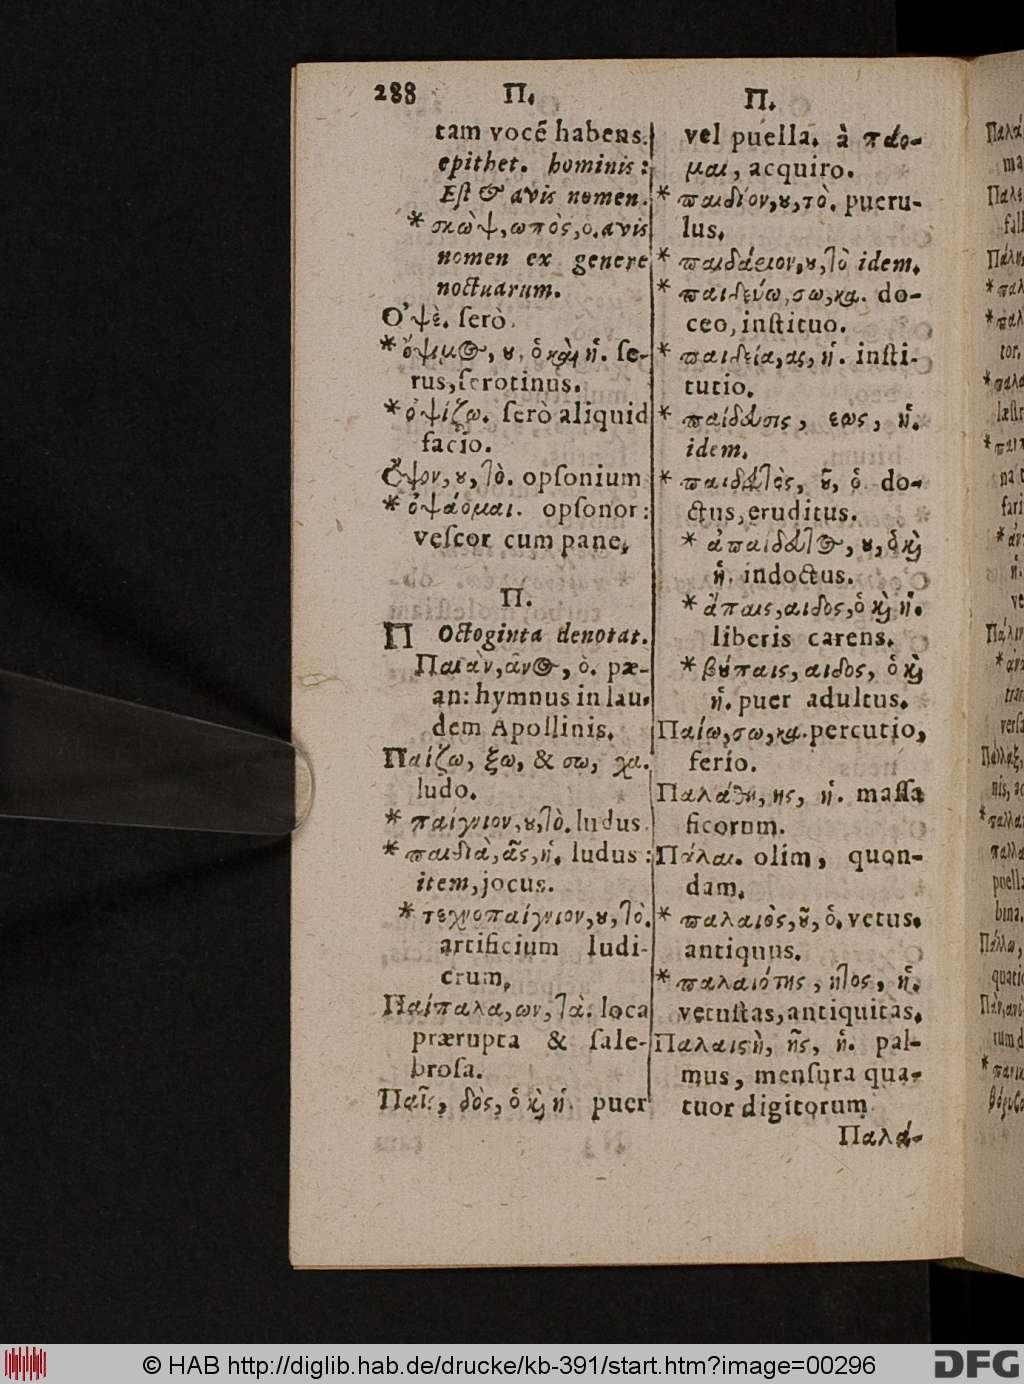 288 Π.
tam vocē habens.
epithet. hominis:
Eſt & avis nomen.
* σκὼψ, ωπὸς, ο. avis
nomen ex genere
noctuarum.
Οψὲ. ſerò.
* ὄψιμος, ου, ὁ καὶ ἡ. ſe-
rus, ſerotinus.
* ὀψίζω. ſerò aliquid
facio.
Ὄψον, ου, τὸ. opſonium
* ὀψάομαι. opſonor:
veſcor cum pane.
Π.
Π Octoginta denotat.
Παιὰν, ᾶνος, ὁ. pæ-
an: hymnus in lau-
dem Apollinis.
Παίζω, ξω, & σω, χα.
ludo.
* παίγνιον, ου, τὸ. ludus.
* παιδιὰ, ᾶς, ἡ. ludus:
item, jocus.
* τεχνοπαίγνιον, ου, τὸ.
artificium ludi-
crum.
Παίπαλα, ων, τὰ. loca
prærupta & ſale-
broſa.
Παῖς, δὸς, ὁ καὶ ἡ. puer
Π.
vel puella. à πάο-
μαι, acquiro.
* παιδίον, ου, τὸ. pueru-
lus.
* παιδάριον, ου, τὸ idem.
* παιδεύω, σω, κα. do-
ceo, inſtituo.
* παιδεία, ας, ἡ. inſti-
tutio.
* παίδευσις, εως, ἡ.
idem.
* παιδευτὸς, οῦ, ὁ. do-
ctus, eruditus.
* ἀπαίδευτος, ου, ὁ καὶ
ἡ. indoctus.
* ἄπαις, αιδος, ὁ καὶ ἡ.
liberis carens.
* βούπαις, αιδος, ὁ καὶ
ἡ. puer adultus.
Παίω, σω, κα. percutio,
ferio.
Παλάθη, ης, ἡ. maſſa
ficorum.
Πάλαι. olim, quon-
dam.
* παλαιὸς, οῦ, ὁ. vetus.
antiquus.
* παλαιότης, ητος, ἡ.
vetuſtas, antiquitas.
Παλαιστὴ, ῆς, ἡ. pal-
mus, menſura qua-
tuor digitorum
Παλά-
© HAB http://diglib.hab.de/drucke/kb-391/start.htm?image=00296
DFG